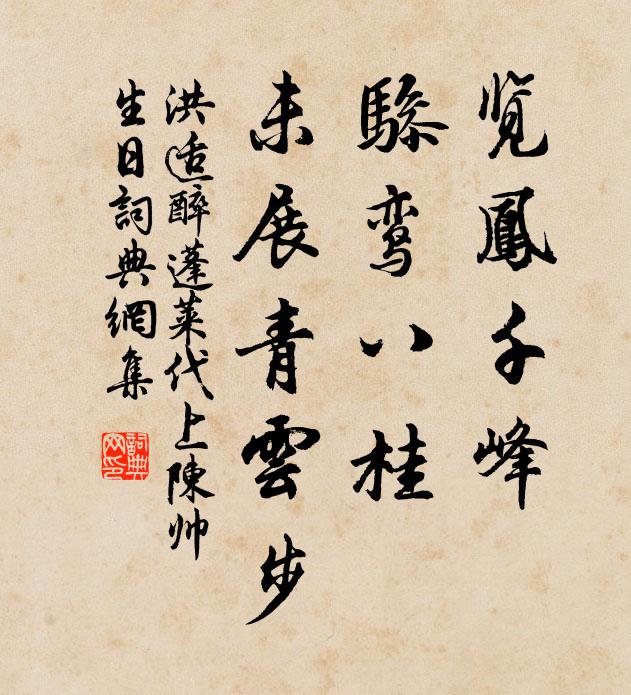 览鳳千峰
驂鸾八桂
未展青雲步
洪适醉蓬萊代上陳帅
生日詞典網集
詞典网印